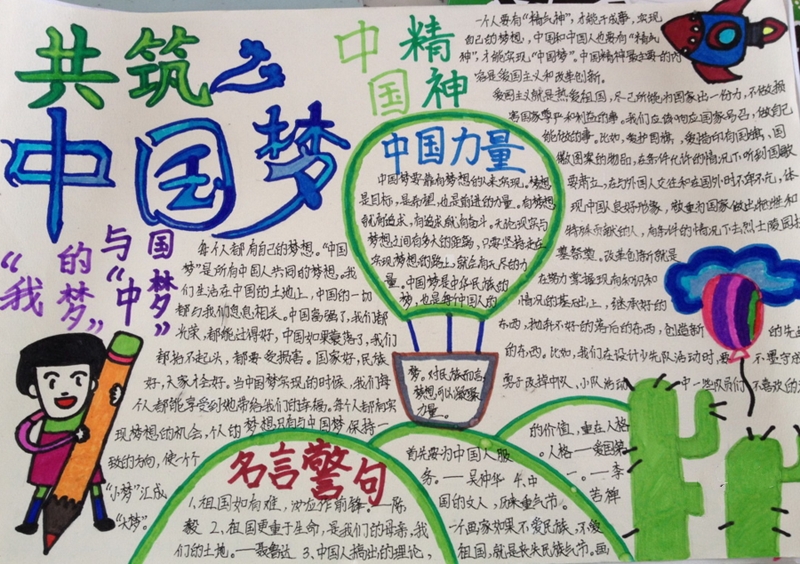 共筑之
中国梦
中国
精神
一个人要有“精气神”，才能干成事，实现
自己的梦想，中国和中国人也要有“精气
神”，才能实现“中国梦”。中国精神最主要的内
容是爱国主义和改革创新。
爱国主义就是热爱祖国，尽己所能为国家出一份力，不做损
害国家尊严和利益的事。我们应该响应国家号召，做自己
能做的事。比如，爱护国旗，爱惜印有国旗、国
徽图案的物品，在条件允许的情况下听到国歌
要肃立，在与外国人交往和在国外时不卑不亢，体
现中国人良好形象，敬重为国家做出牺牲和
特殊贡献的人，有条件的情况下去烈士陵园扫
墓祭奠。改革创新就是
在努力掌握现有知识和
情况的基础上，继承好的
东西，抛弃不好的落后的东西，创造新的先进
的东西。比如，我们在设计少先队活动时，要不墨守成
要求改掉中队、小队活动中一些队员们不喜欢的
中国力量
中国梦要靠有梦想的人来实现。梦想
是目标，是希望，也是前进的力量。有梦想
就有追求，有追求就有奋斗。无论现实与
梦想之间有多大的距离，只要坚持走在
实现梦想的路上，就会有无尽的力
量。中国梦是中华民族的
梦，也是每个中国人的
梦。对民族而言
梦想可以凝聚
力量。
“我的梦”
与“中国梦”
每个人都有自己的梦想。“中国
梦”是所有中国人共同的梦想。我
们生活在中国的土地上，中国的一切
都与我们息息相关。中国富强了，我们都
光荣，都能过得好，中国如果衰落了，我们
都抬不起头，都要受损害。国家好，民族
好，大家才会好。当中国梦实现的时候，我们每
个人都能享受到她带给我们的幸福。每个人都有实
现梦想的机会，个人的梦想只有与中国梦保持一
致的方向，使一个个
“小梦”汇成
“大梦”。
名言警句
1、祖国如有难，汝应作前锋。——陈
毅 2、祖国更重于生命，是我们的母亲，我
们的土地。——聂鲁达 3、中国人搞出的理论，
首先要为中国人服
务。——吴仲华 4、中
国的文人，历来重气节。
一个画家如果不爱民族，不爱
祖国，就是丧失民族气节。画
的价值，重在人格
。人格——爱国第
一。——李
苦禅